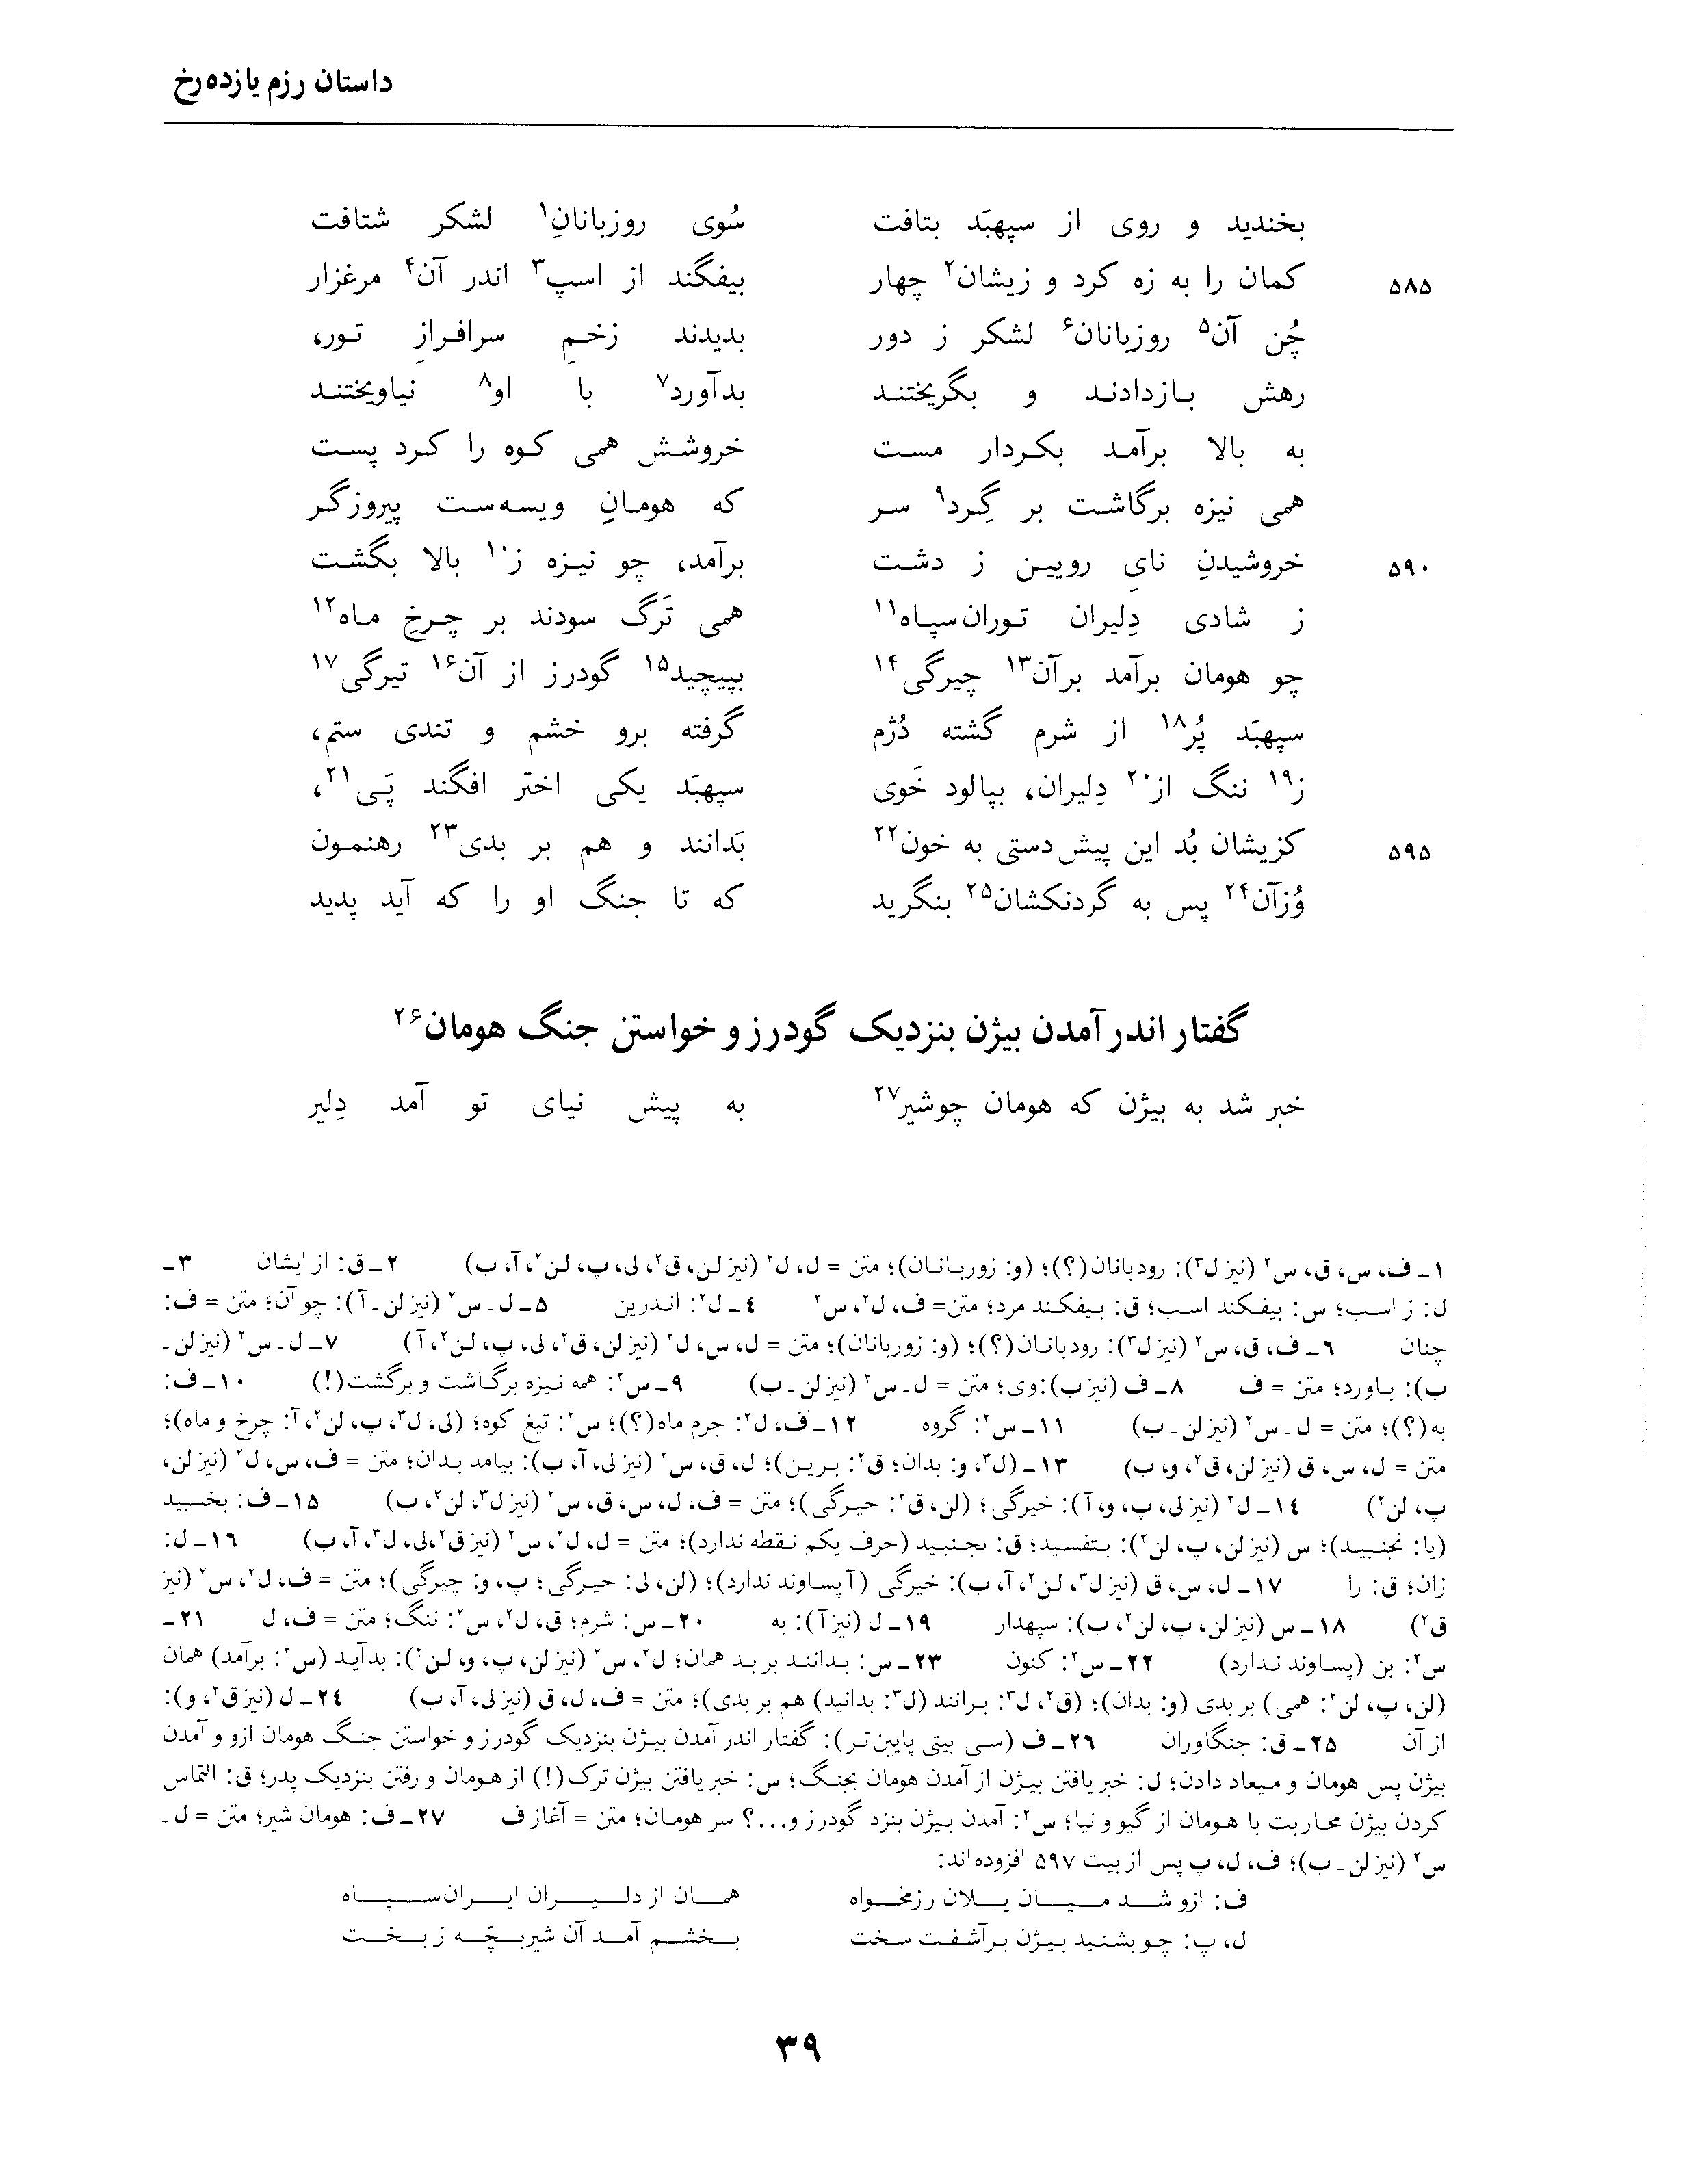 داستان رزم یازده‌رخ
بخندید و روی از سپهبَد بتافت سُوی روزبانانِ۱ لشکر شتافت
۵۸۵ کمان را به زه کرد و زیشان۲ چهار بیفگند از اسپ۳ اندر آن۴ مرغزار
چُن آن۵ روزبانان۶ لشکر ز دور بدیدند زخمِ سرافرازِ تور،
رهش بازدادند و بگریختند بدآورد۷ با او۸ نیاویختند
به بالا برآمد بکردار مست خروشش همی کوه را کرد پست
همی نیزه برگاشت بر گِرد۹ سر که هومانِ ویسه‌ست پیروزگر
۵۹۰ خروشیدنِ نایِ رویین ز دشت برآمد، چو نیزه ز۱۰ بالا بگشت
ز شادی دِلیران توران‌سپاه۱۱ همی تَرگ سودند بر چرخِ ماه۱۲
چو هومان برآمد برآن۱۳ چیرگی۱۴ بپیچید۱۵ گودرز از آن۱۶ تیرگی۱۷
سپهبَد پُر۱۸ از شرم گشته دُژم گرفته برو خشم و تندی ستم،
ز۱۹ ننگ از۲۰ دِلیران، بپالود خَوی سپهبَد یکی اختر افگند پَی۲۱،
۵۹۵ کزیشان بُد این پیش‌دستی به خون۲۲ بَدانند و هم بر بدی۲۳ رهنمون
وُزآن۲۴ پس به گردنکشان۲۵ بنگرید که تا جنگ او را که آید پدید
گفتار اندر آمدن بیژن بنزدیک گودرز و خواستن جنگ هومان۲۶
خبر شد به بیژن که هومان چو شیر۲۷ به پیش نیای تو آمد دِلیر
۱ـ ف، س، ق، س۲ (نیز ل۳): رودبانان(؟)؛ (و: زوربانان)؛ متن = ل، ل۲ (نیز لن، ق۲، لی، پ، لن۲، آ، ب) ۲ـ ق: از ایشان ۳ـ
ل: ز اسب؛ س: بیفکند اسب؛ ق: بیفکند مرد؛ متن= ف، ل۲، س۲ ٤ـ ل۲: اندرین ۵ـ ل ـ س۲ (نیز لن ـ آ): چو آن؛ متن = ف:
چنان ٦ـ ف، ق، س۲ (نیز ل۳): رودبانان(؟)؛ (و: زوربانان)؛ متن = ل، س، ل۲ (نیز لن، ق۲، لی، پ، لن۲، آ) ۷ـ ل ـ س۲ (نیز لن ـ
ب): باورد؛ متن = ف ۸ـ ف (نیز ب):وی؛ متن = ل ـ س۲ (نیز لن ـ ب) ۹ـ س۲: همه نیزه برگاشت و برگشت(!) ۱۰ـ ف:
به(؟)؛ متن = ل ـ س۲ (نیز لن ـ ب) ۱۱ـ س۲: گروه ۱۲ـ ف، ل۲: جرم ماه(؟)؛ س۲: تیغ کوه؛ (لی، ل۳، پ، لن۲، آ: چرخ و ماه)؛
متن = ل، س، ق (نیز لن، ق۲، و، ب) ۱۳ـ (ل۳، و: بدان؛ ق۲: برین)؛ ل، ق، س۲ (نیز لی، آ، ب): بیامد بدان؛ متن = ف، س، ل۲ (نیز لن،
پ، لن۲) ۱٤ـ ل۲ (نیز لی، پ، و، آ): خیرگی؛ (لن، ق۲: حیرگی)؛ متن = ف، ل، س، ق، س۲ (نیز ل۳، لن۲، ب) ۱۵ـ ف: بخسبید
(یا: نجنبید)؛ س (نیز لن، پ، لن۲): بتفسید؛ ق: ںجنبید (حرف یکم نقطه ندارد)؛ متن = ل، ل۲، س۲ (نیز ق۲،لی، ل۳، آ، ب) ۱٦ـ ل:
زان؛ ق: را ۱۷ـ ل، س، ق (نیز ل۳، لن۲، آ، ب): خیرگی (آ پساوند ندارد)؛ (لن، لی: حیرگی؛ پ، و: چیرگی)؛ متن = ف، ل۲، س۲ (نیز
ق۲) ۱۸ـ س (نیز لن، پ، لن۲، ب): سپهدار ۱۹ـ ل (نیز آ): به ۲۰ـ س: شرم؛ ق، ل۲، س۲: ننگ؛ متن = ف، ل ۲۱ـ
س۲: بن (پساوند ندارد) ۲۲ـ س۲: کنون ۲۳ـ س: بدانند بر بد همان؛ ل۲، س۲ (نیز لن، پ، و، لن۲): بدآید (س۲: برآمد) همان
(لن، پ، لن۲: همی) بر بدی (و: بدان)؛ (ق۲، ل۳: برانند (ل۳: بدانید) هم بر بدی)؛ متن = ف، ل، ق (نیز لی، آ، ب) ۲٤ـ ل (نیز ق۲، و):
از آن ۲۵ـ ق: جنگاوران ۲٦ـ ف (سی بیتی پایین‌تر): گفتار اندر آمدن بیژن بنزدیک گودرز و خواستن جنگ هومان ازو و آمدن
بیژن پس هومان و میعاد دادن؛ ل: خبر یافتن بیژن از آمدن هومان بجنگ؛ س: خبر یافتن بیژن ترک(!) از هومان و رفتن بنزدیک پدر؛ ق: التماس
کردن بیژن محاربت با هومان از گیو و نیا؛ س۲: آمدن بیژن بنزد گودرز و...؟ سر هومان؛ متن = آغاز ف ۲۷ـ ف: هومان شیر؛ متن = ل ـ
س۲ (نیز لن ـ ب)؛ ف، ل، پ پس از بیت ۵۹۷ افزوده‌اند:
ف: ازو شد میان یلان رزمخواه همان از دلیران ایران‌سپاه
ل، پ: چو بشنید بیژن برآشفت سخت بخشم آمد آن شیربچّه ز بخت
۳۹